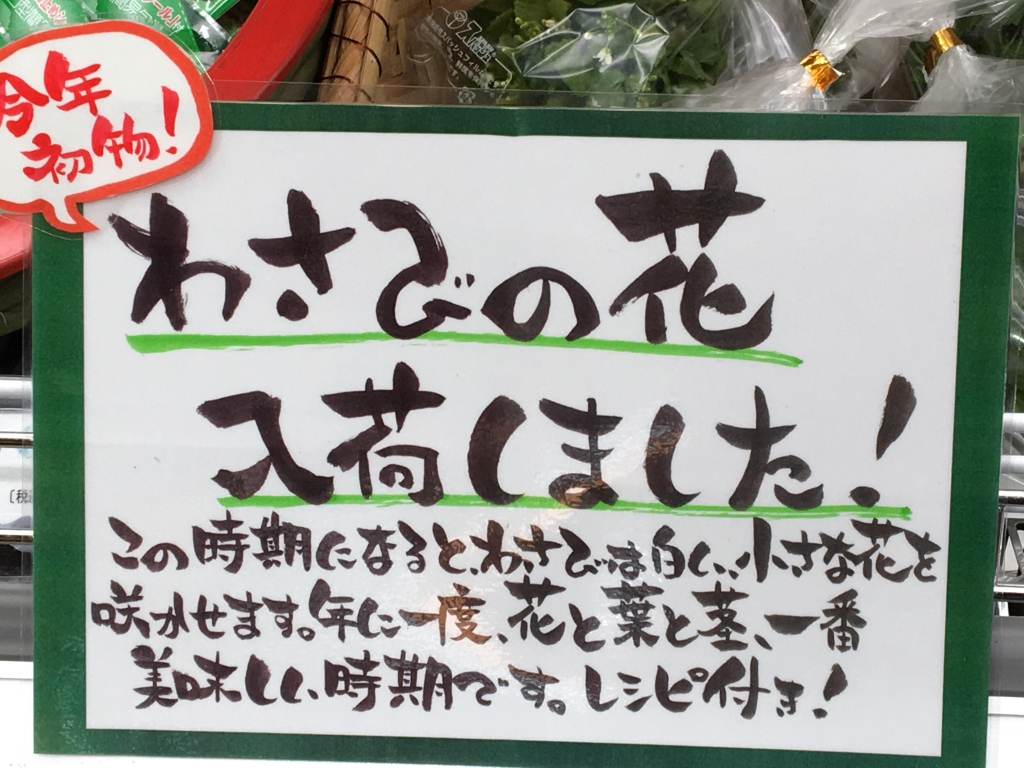 今年
初物!
わさびの花
入荷しました!
この時期になると、わさびは白い、小さな花を
咲かせます。年に一度、花と葉と茎、一番
美味しい時期です。レシピ付き!